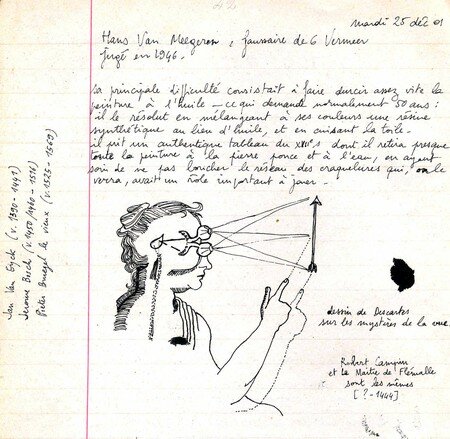 mardi 25 déc 01
Hans Van Meegeren, faussaire de 6 Vermeer
jugé en 1946.
sa principale difficulté consistait à faire durcir assez vite la
peinture à l'huile — ce qui demande normalement 50 ans :
il le résolut en mélangeant à ses couleurs une résine
synthétique au lieu d'huile, et en cuisant la toile.
il prit un authentique tableau du XVIIe s dont il retira presque
toute la peinture à la pierre ponce et à l'eau, en ayant
soin de ne pas boucher le réseau des craquelures qui, on le
verra, avait un rôle important à jouer.
Jan Van Eyck (v. 1390-1441)
Jérome Bosch (v. 1450/1460-1516)
Pieter Bruegel le vieux (v. 1525-1569)
dessin de Descartes
sur les mystères de la vue.
Robert Campin
et le Maître de Flémalle
sont les mêmes
[?-1444]